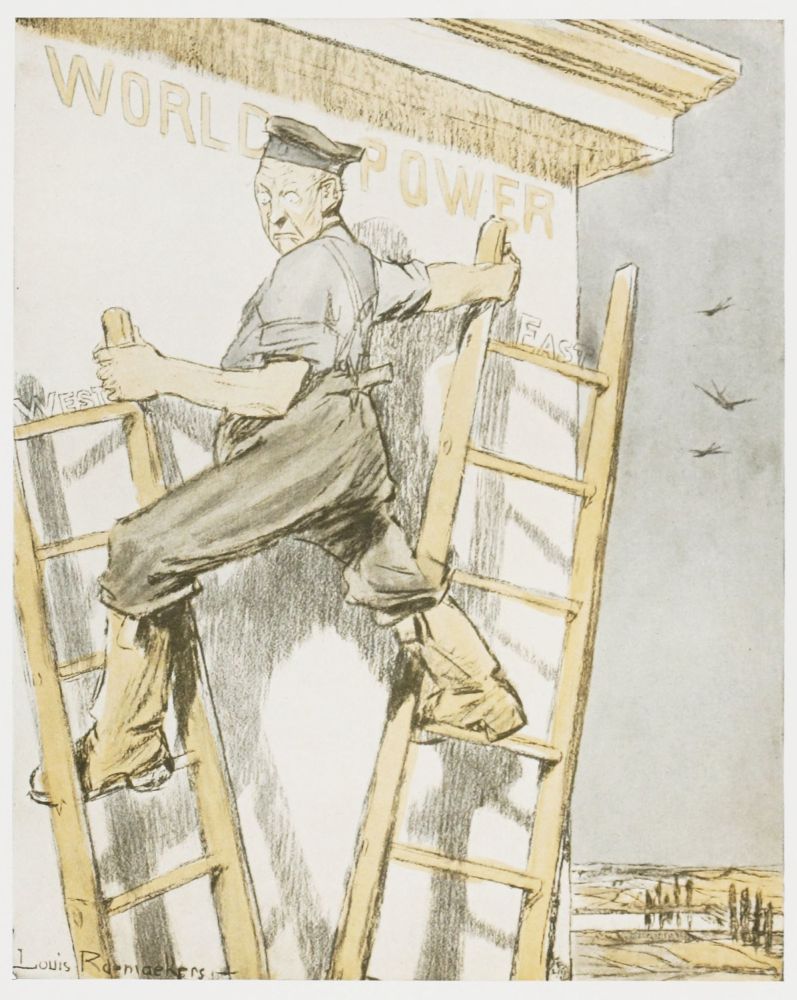 WORLD POWER
EAST
WEST
Louis Raemaekers